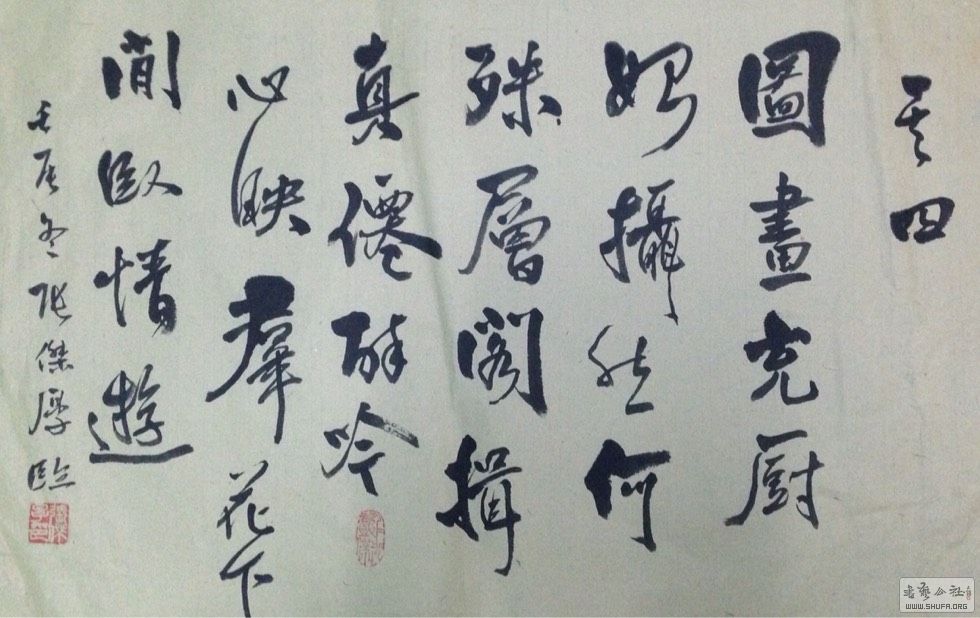 其四
圖畫充厨
好攝然何
殊層閣揖
真僊醉吟
心映羣花下
閒臥情遊
壬辰冬張傑厚臨
書藝公社
WWW.SHUFA.ORG